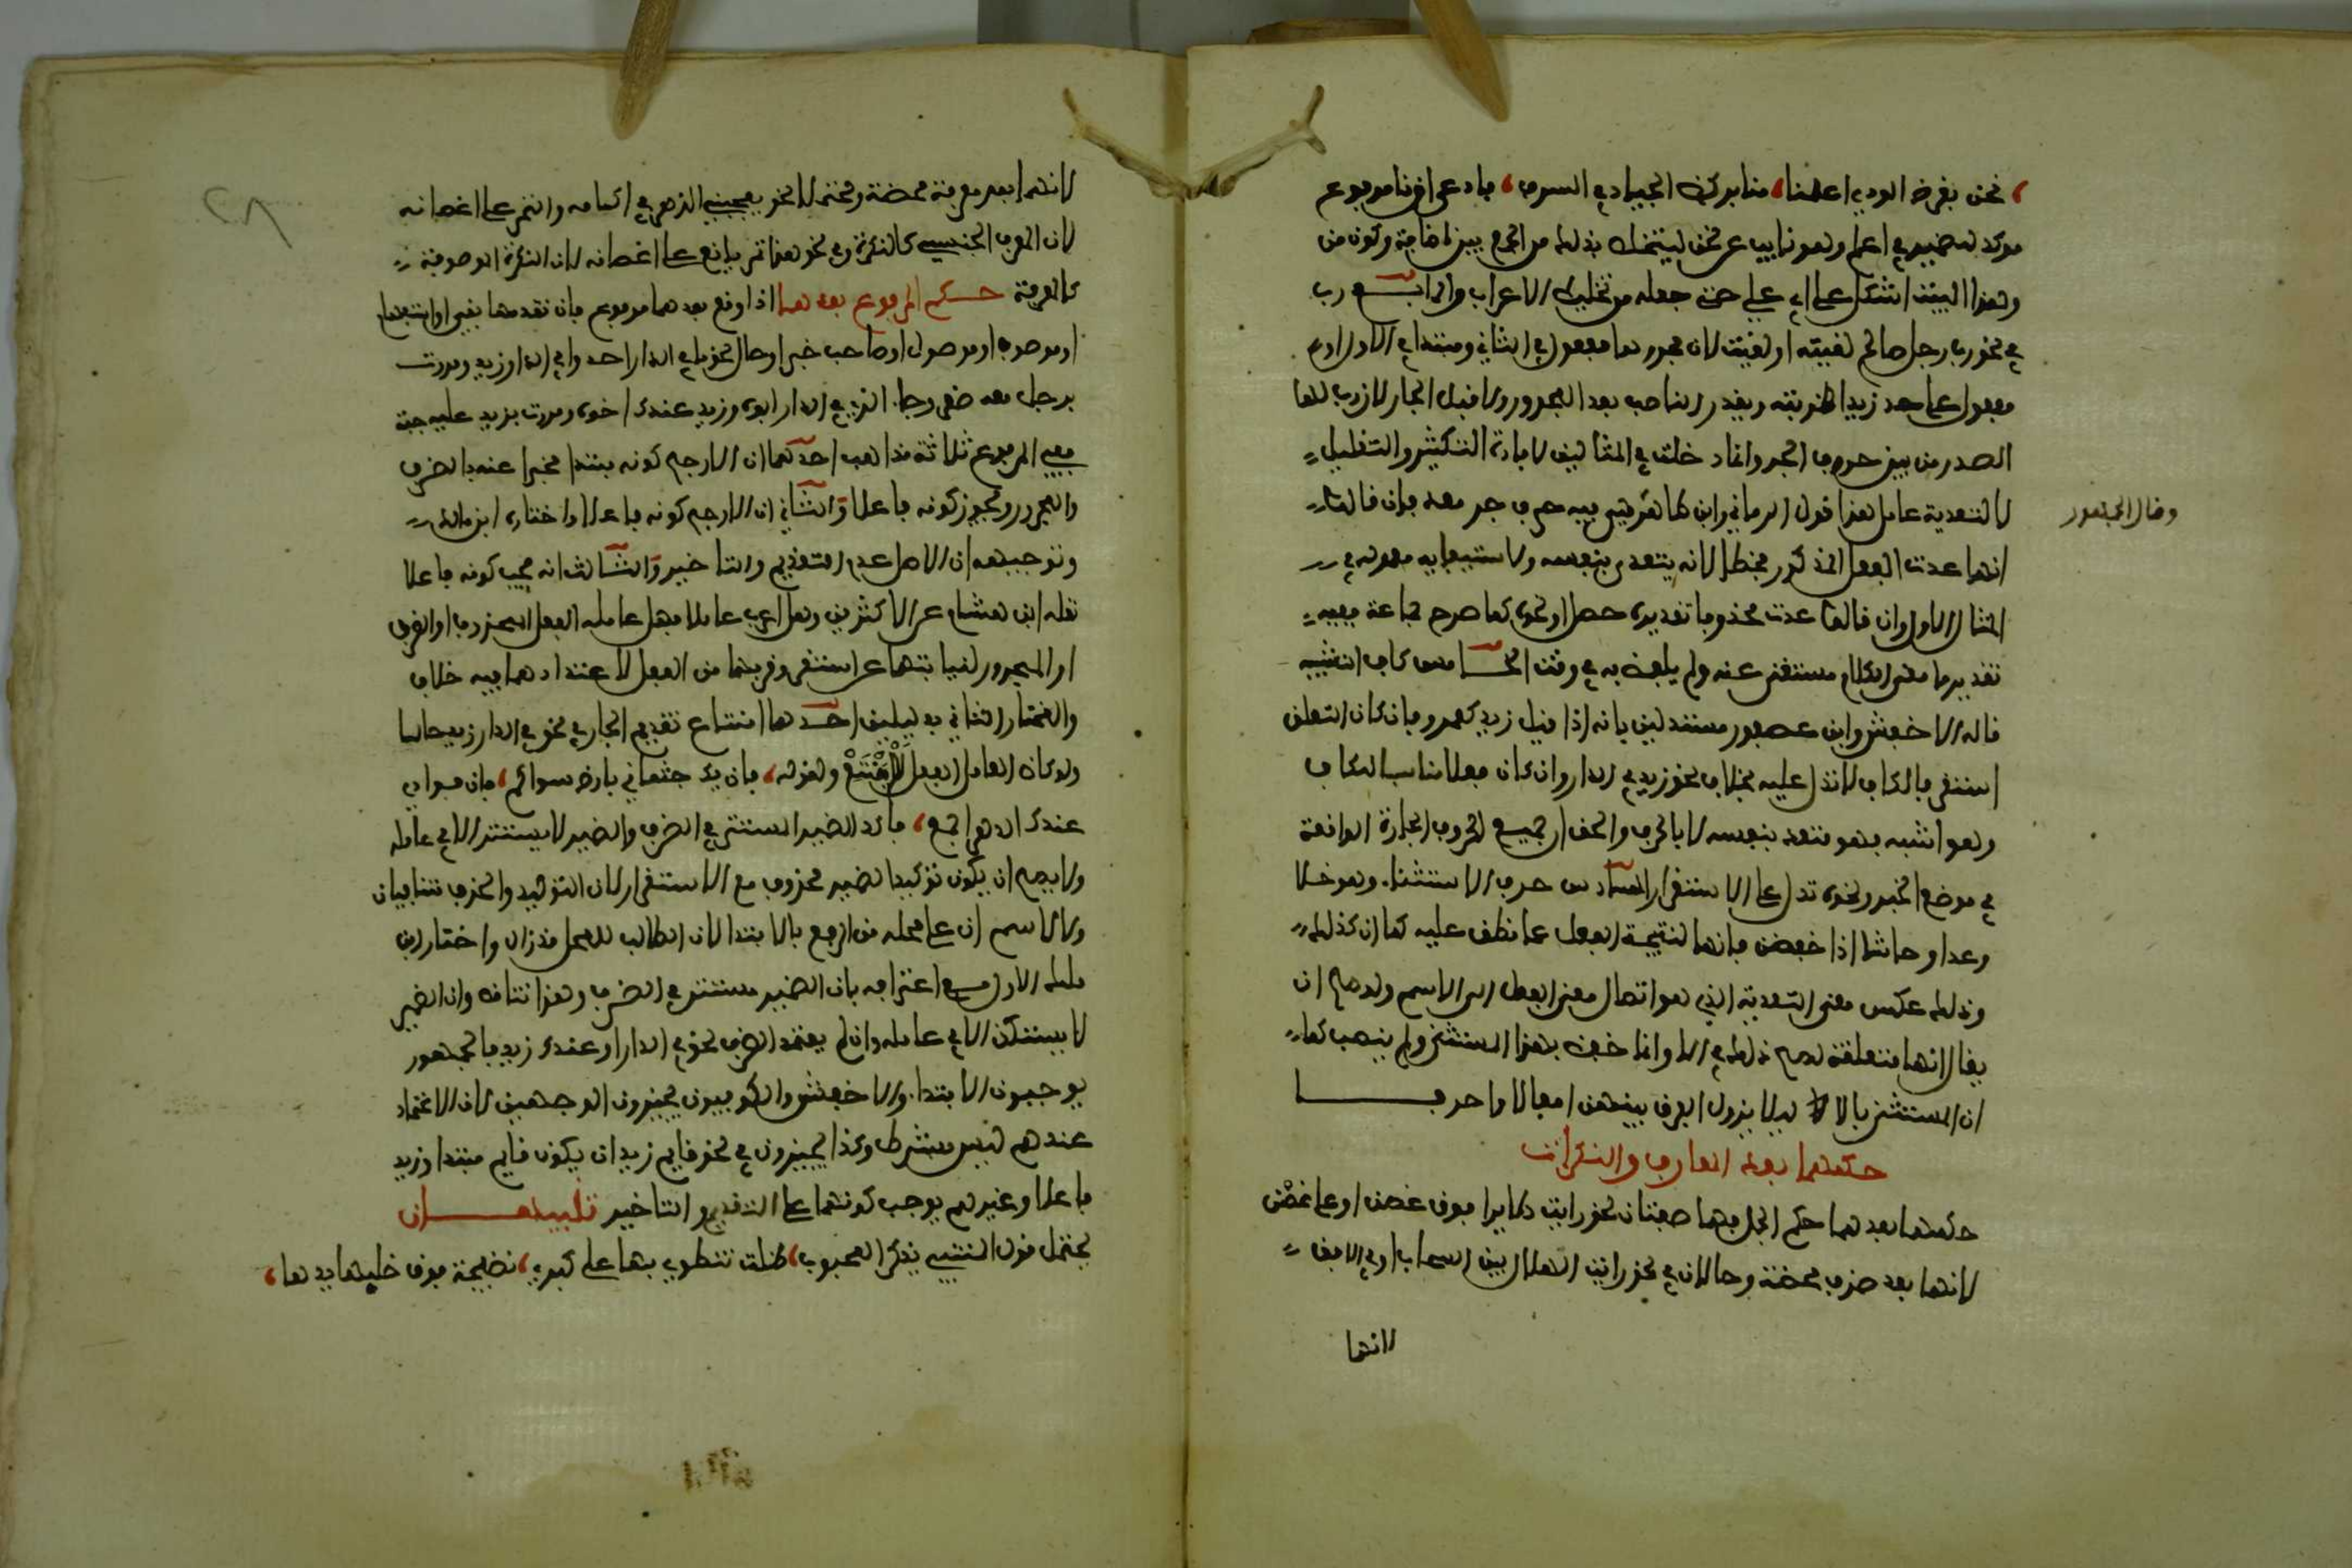 نحن بغرس الودي اعلمنا، منا بركض الجياد في السدف، فادعى ان نا مرفوع
موكد لضمير في اعلم وهو نايب عن نحن ليتخلص بذلك من الجمع بين اضافة وكون من
وهذا البيت اشكل على ابي علي حتى جعله من تخليط الاعراب والرابع رب
في نحو رب رجل صالح لقيته او لقيت لان مجرورها مفعول في الثاني ومبتدا في الاول او
مفعول على حد زيدا ضربته ويقدر الناصب بعد المجرور لا قبل الجار لان رب لها
الصدر من بين حروف الجر وانما دخلت في المثالين لافادة التكثير والتقليل
لا لتعدية عامل هذا قول الرماني وابن طاهر هي فيه حرف جر معد فان قالوا
وقال الجمهور
انها عدت الفعل المذكور فخطا لانه يتعدى بنفسه ولاستيفايه معموله في
المثال الاول وان قالوا عدت محذوفا تقديره حصل او نحوه كما صرح جماعة ففيه
تقدير ما معنى الكلام مستغنى عنه ولم يلفظ به في وقت الخامس كاف التشبيه
قاله الاخفش وابن عصفور مستدلين بانه اذا قيل زيد كعمرو فان كان المتعلق
استقر فالكاف لا تدل عليه بخلاف نحو زيد في الدار وان كان فعلا مناسبا للكاف
وهو اشبه فهو متعد بنفسه لا بالحرف والحق ان جميع الحروف الجارة الواقعة
في موضع الخبر ونحوه تدل على الاستقرار السادس حرف الاستثناء وهو خلا
وعدا وحاشا اذا خفضن فانها لتنحية الفعل عما دخلن عليه كما ان كذلك
وذلك عكس معنى التعدية الذي هو ايصال معنى الفعل الى الاسم ولو صح ان
يقال انها متعلقة لصح ذلك في الا وانما خفض بهن المستثنى ولم ينصب كما
ان المستثنى بالا ليلا يزول الفرق بينهن افعالا واحرفا
حكمهما بعد المعارف والنكرات
حكمهما بعدهما حكم الجمل فهما صفتان في نحو رايت طايرا فوق غصن او على غصن
لانهما بعد نكرة محضة وحالان في نحو رايت الهلال بين السحاب او في الافق
لانهما
لانهما بعد معرفة محضة ومحتملان في نحو يعجبني الزهر في اكمامه والثمر على اغصانه
لان المعرف الجنسي كالنكرة وفي نحو هذا ثمر يانع على اغصانه لان النكرة الموصوفة
كالمعرفة حكم المرفوع بعدهما اذا وقع بعدهما مرفوع فان تقدمهما نفي او استفهام
او موصوف او موصول او صاحب خبر او حال نحو ما في الدار احد وافي الدار زيد ومررت
برجل معه صقر وجا الذي في الدار ابوه وزيد عندك اخوه ومررت بزيد عليه جبة
ففي المرفوع ثلاثة مذاهب احدها ان الارجح كونه مبتدا مخبرا عنه بالظرف
والمجرور ويجوز كونه فاعلا والثاني ان الارجح كونه فاعلا واختاره ابن مالك
وتوجيهه ان الاصل عدم التقديم والتاخير والثالث انه يجب كونه فاعلا
نقله ابن هشام عن الاكثرين وحيث اعرب فاعلا فهل عامله الفعل المحذوف او الظرف
او المجرور لنيابتهما عن استقر وقربهما من الفعل لاعتمادهما فيه خلاف
والمختار الثاني بدليلين احدهما امتناع تقديم الحال في نحو في الدار زيد جالسا
ولو كان العامل الفعل لم يمتنع ولقوله، فان يك جثماني بارض سواكم، فان فوادي
عندك الدهر اجمع، فاكد الضمير المستتر في الظرف والضمير لا يستتر الا في عامله
ولا يصح ان يكون توكيدا لضمير محذوف مع الاستقرار لان التوكيد والحذف متنافيان
ولا لاسم ان على محله من الرفع بالابتدا لان الطالب للمحل قد زال واختار ابن
مالك الاول مع اعترافه بان الضمير مستتر في الظرف وهذا تناقض وان الضمير
لا يستكن الا في عامله وان لم يعتمد الظرف نحو في الدار او عندك زيد فالجمهور
يوجبون الابتدا والاخفش والكوفيون يجيزون الوجهين لان الاعتماد
عندهم ليس بشرط وكذا يجيزون في نحو قايم زيد ان يكون قايم مبتدا وزيد
فاعلا وغيرهم يوجب كونهما على التقديم والتاخير تنبيهان
يحتمل قول المتنبي يذكر المحبوب، ظلت تنطوي بها على كبد، نضيجة فوق خلبها يدها،